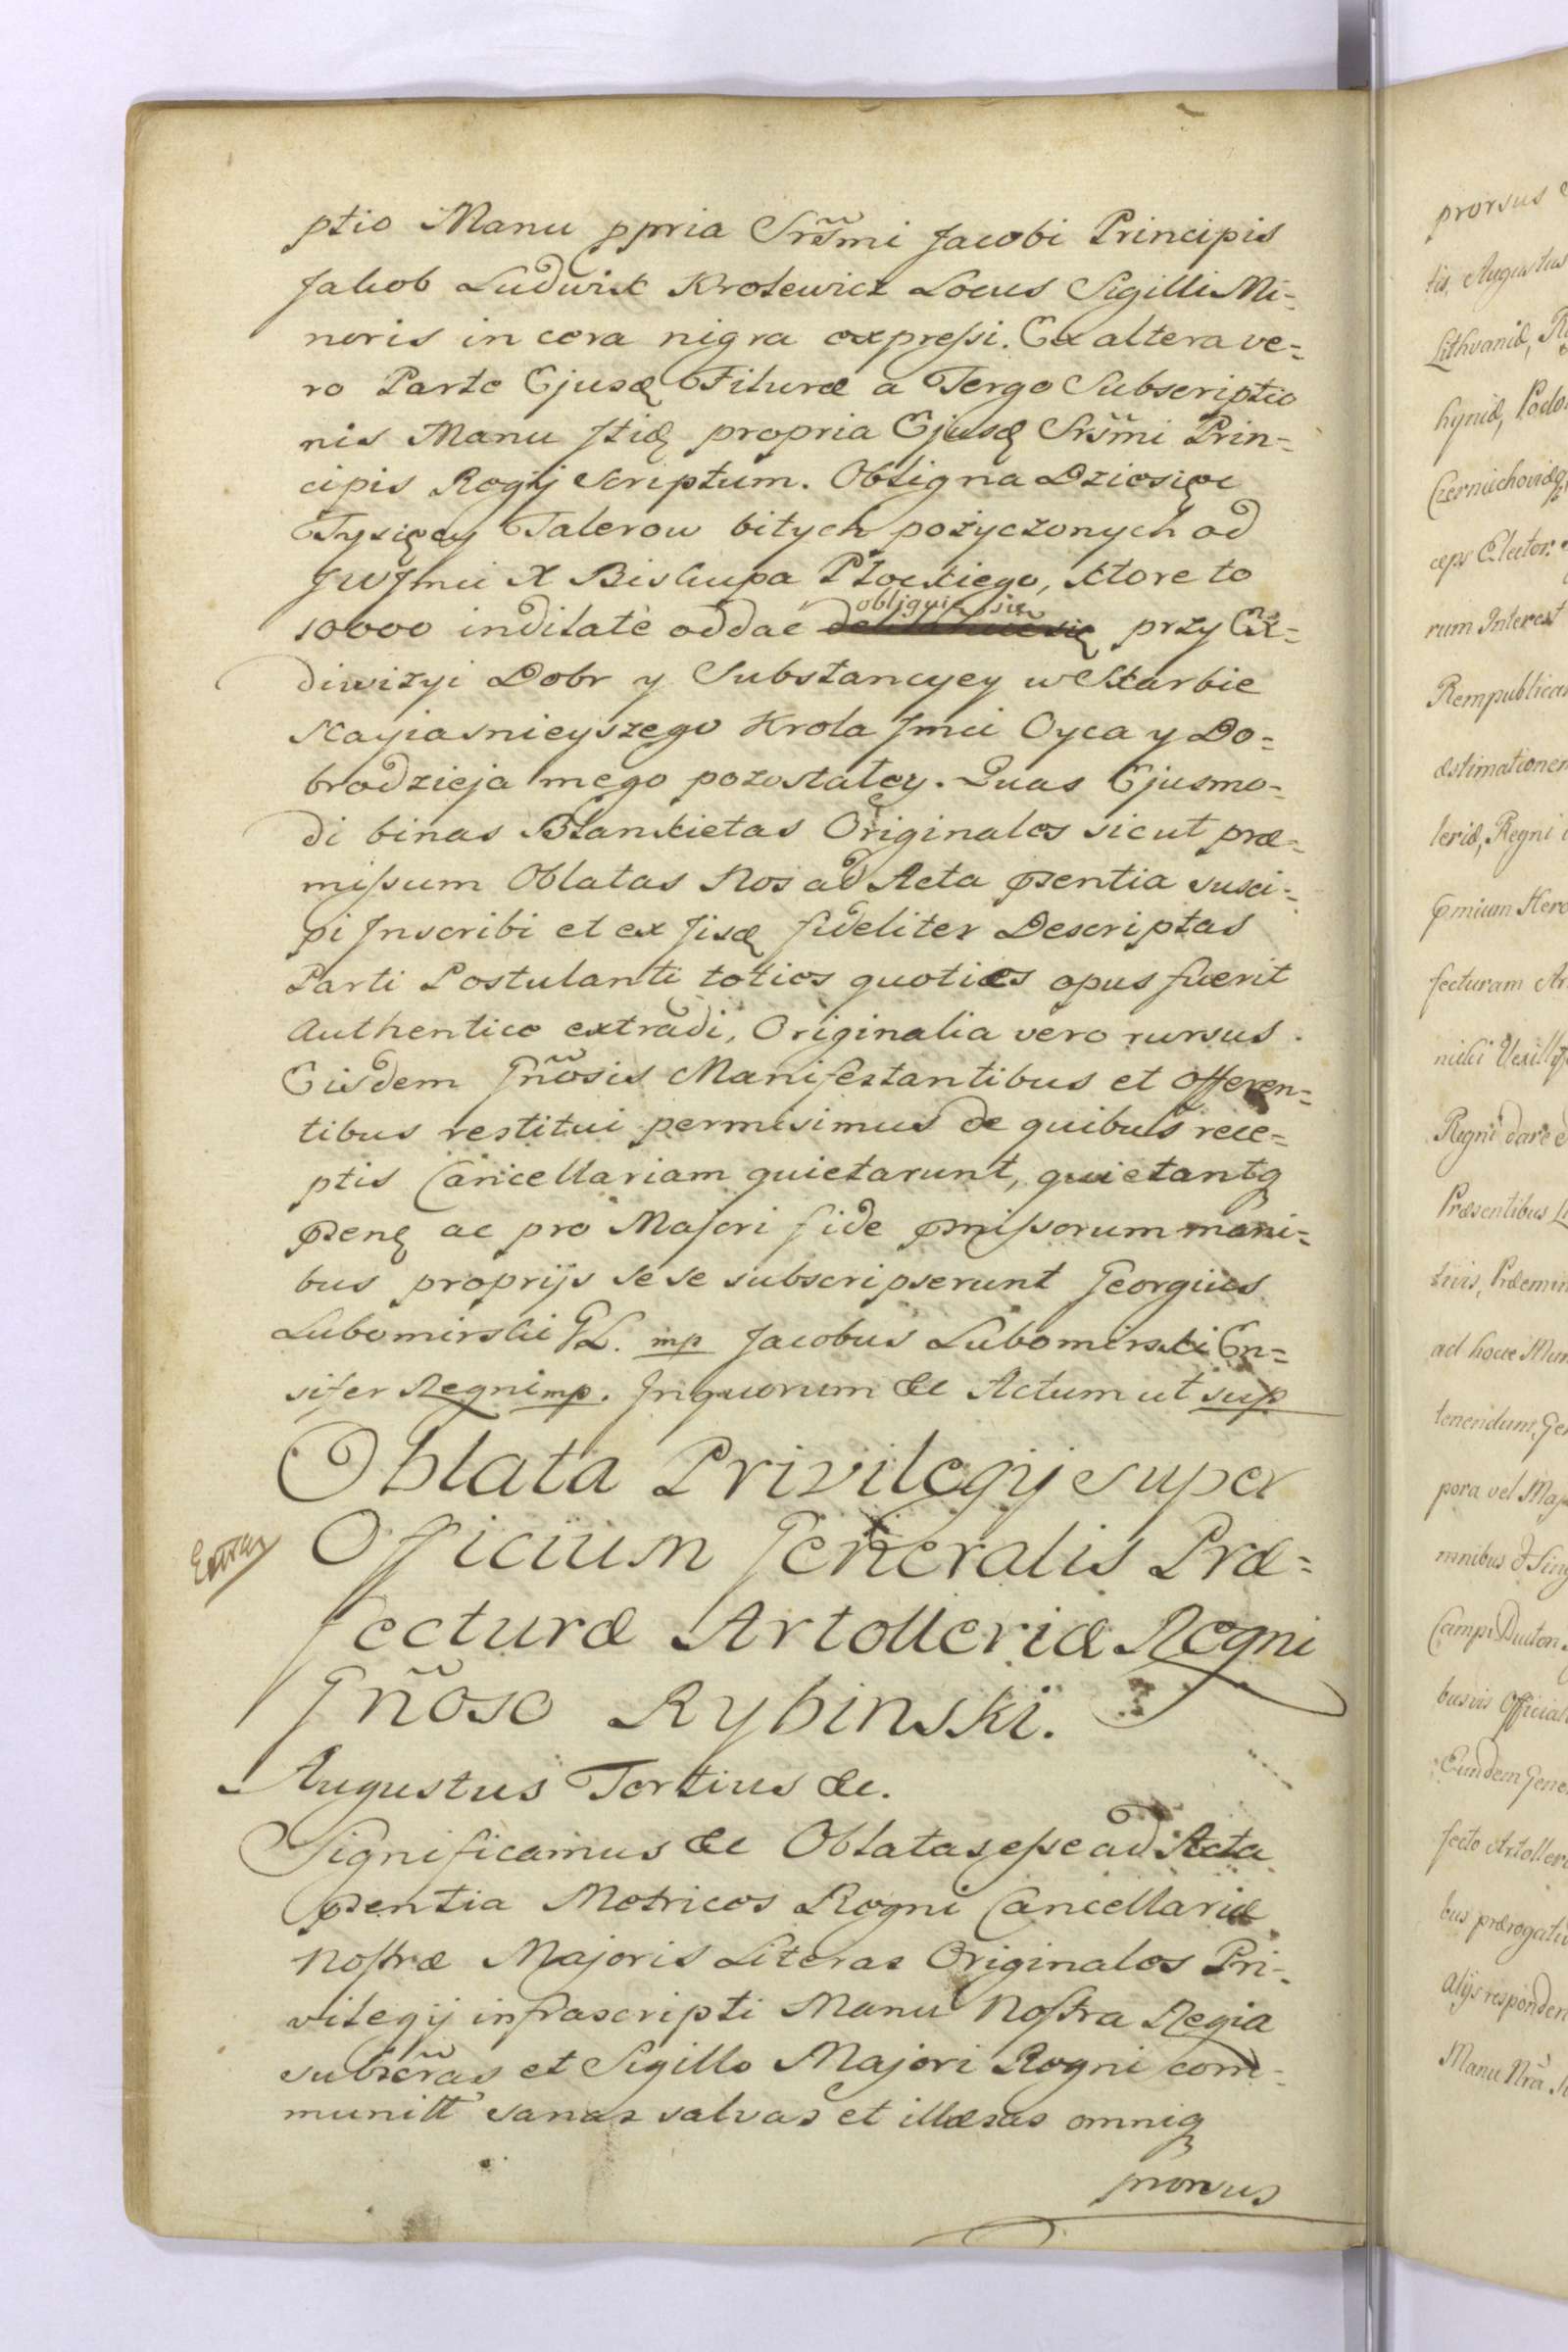 ptio Manu ppria Srs̃mi Jacobi Principis
Jakob Ludwik Krolewicz Locus Sigilli Mi=
noris in cera nigra expressi. Ex altera ve=
ro Parte Ejusd Filuræ a Tergo Subscriptio
nis Manu itid propria Ejusd Srs̃mi Prin=
cipis Regij Scriptum. Oblig na Dziesięc
Tysięcy Talerow bitych pożyczonych od
JWJmci X Biskupa Płockiego, ktore to
10000 indilatè oddać obliguię się przy Ex=
diwizyi Dobr y Substancyey w Skarbie
Nayiasnieyszego Krola Jmci Oyca y Do=
brodzieja mego pozostałey. Quas Ejusmo=
di binas Blankietas Originales sicut præ=
missum Oblatas Nos ad Acta psentia susci=
pi Inscribi et ex Iisd fideliter Descriptas
Parti Postulanti toties quoties opus fuerit
Authentice extradi, Originalia vero rursus
Eisdem Gñosis Manifestantibus et offeren=
tibus restitui permisimus de quibus rece=
ptis Cancellariam quietarunt, quietantq
psenq ac pro Majori fide pmissorum mani=
bus proprijs sese subscripserunt Georgius
Lubomirski GL. mp Jacobus Lubomirski En=
sifer Regni mp. In quorum &c Actum ut sup
Oblata Privilegij super
Officium Generalis Præ=
fecturæ Artolleriæ Regni
Gñoso Rybinski.
Augustus Tertius &c.
Significamus &c Oblatas esse ad Acta
psentia Metrices Regni Cancellariæ
Nostræ Majoris Literas Originales Pri=
vilegij infrascripti Manu Nostra Regia
subscr̃as et Sigillo Majori Regni com=
munitt sanas salvas et illæsas omniq
prorsus
prorsus
tis, Augustus
Lithvaniæ,
hyniæ, Podo
Czernichoviæq
ceps Elector.
rum Interest
Rempublicam
æstimationem
leriæ, Regni
pmium Hero
fecturam Ar
nicki Vexillif
Regni dare
Præsentibus
tiis, Præemin
ad hocce Mun
tenendum, Gen
pora vel Maj
mnibus & Sing
Campi Ductor
busvis Official
Eundem Gene
fecto Artolleri
bus prærogativ
alijs responden
Manu Nrã